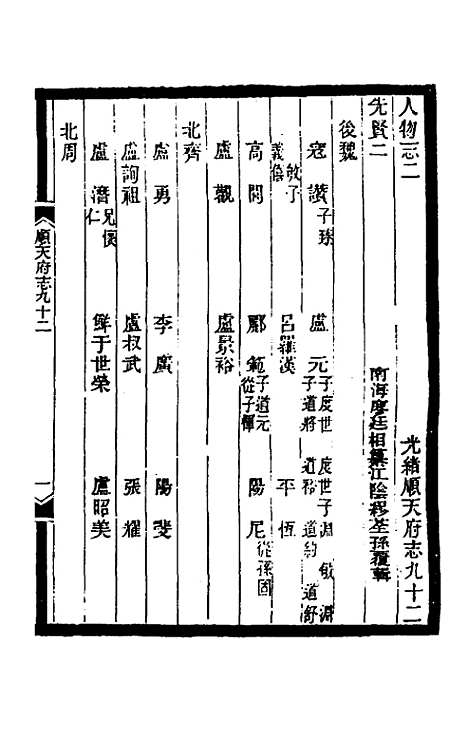 人物志二 光緒順天府志九十二
先賢二 南海廖廷相纂江陰繆荃孫覆輯
後魏
寇讚子臻 盧元子度世 度世子淵 敏 淵子道將 道裕 道約 道舒
敏子義僖 呂羅漢 平恆
高閭 酈範子道元 從子惲 陽尼從孫固
盧觀 盧景裕
北齊
盧勇 李廣 陽斐
盧詢祖 盧叔武 張耀
盧潛兄懷仁 鮮于世榮 盧昭美
北周
順天府志九十二 一